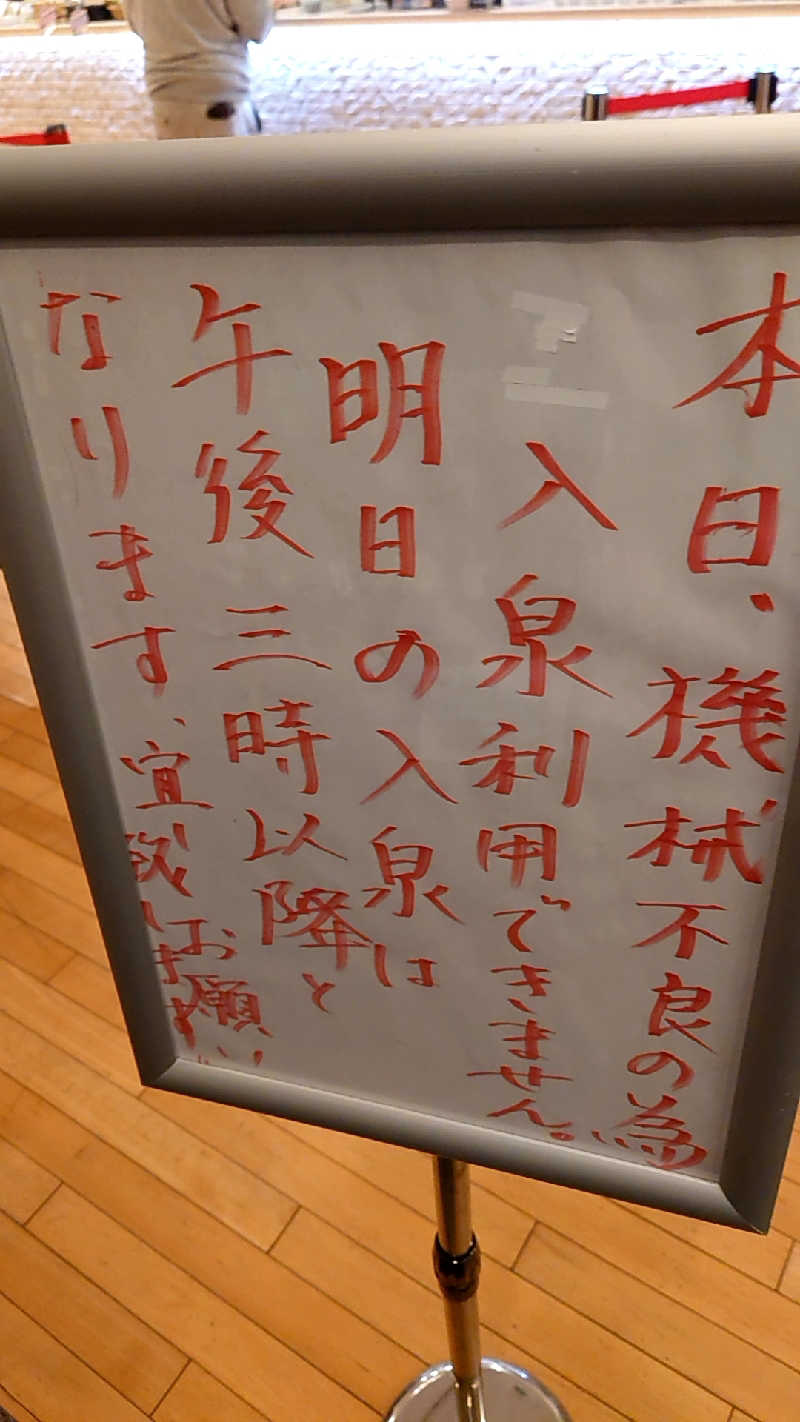 本日、機械不良の為
入泉利用できません。
明日の入泉は
午後三時以降と
なります、宜敷
お願い
致します